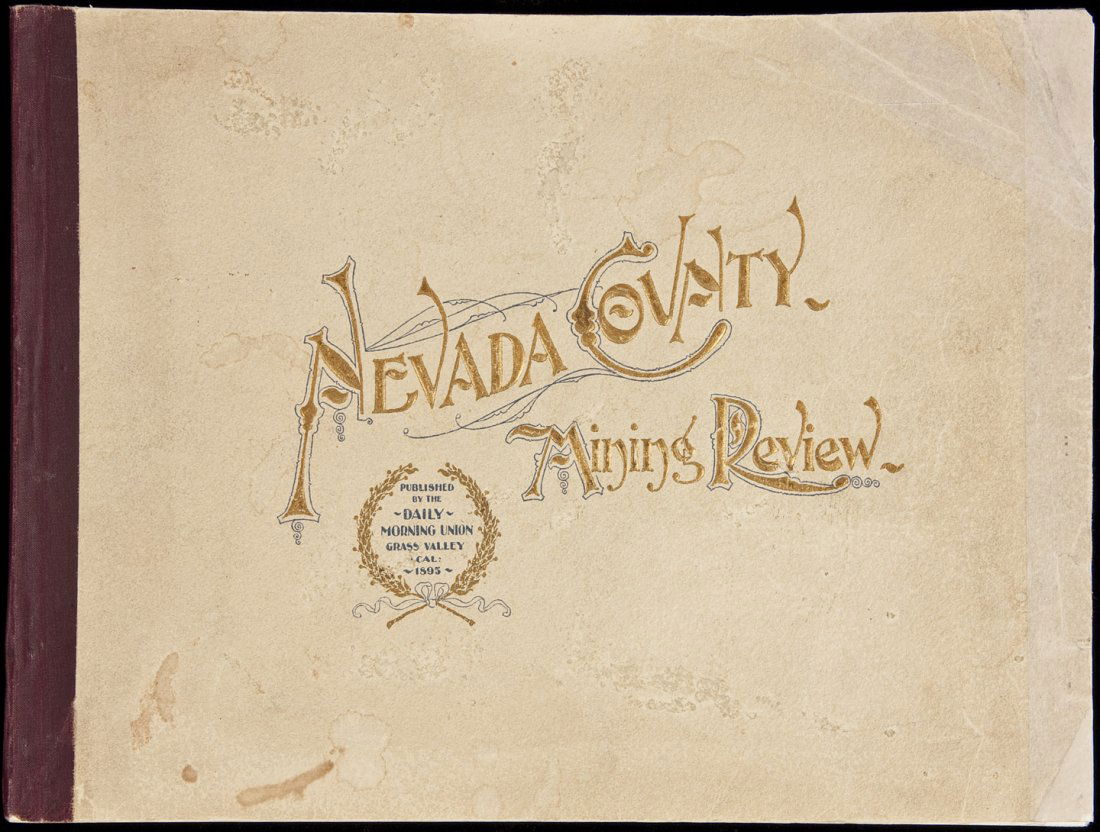 NEVADA COUNTY
Mining Review
PUBLISHED
BY THE
~DAILY~
MORNING UNION
GRASS VALLEY
CAL:
~1895~